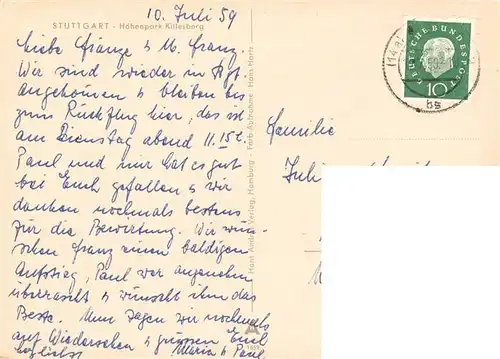 10. Juli 59
STUTTGART - Höhenpark Killesberg
Liebe Fränze & M. Franz.
Wir sind wieder in Stgt.
angekommen & bleiben bis
zum Rückflug hier, das ist
am Dienstag abend 11.15
Paul und mir hat es gut
bei Euch gefallen & wir
danken nochmals bestens
für die Bewirtung. Wir wün-
schen Franz einen baldigen
Aufstieg, Paul war angenehm
überrascht & wünscht ihm das
Beste. Nun sagen wir nochmals
auf Wiedersehen & grüssen Euch
herzlichst Maria & Paul
Hans Andres Verlag, Hamburg - Farb-Aufnahme: Hans Hartz
DEUTSCHE BUNDESPOST
10
(14a)
bs
Familie
Juli